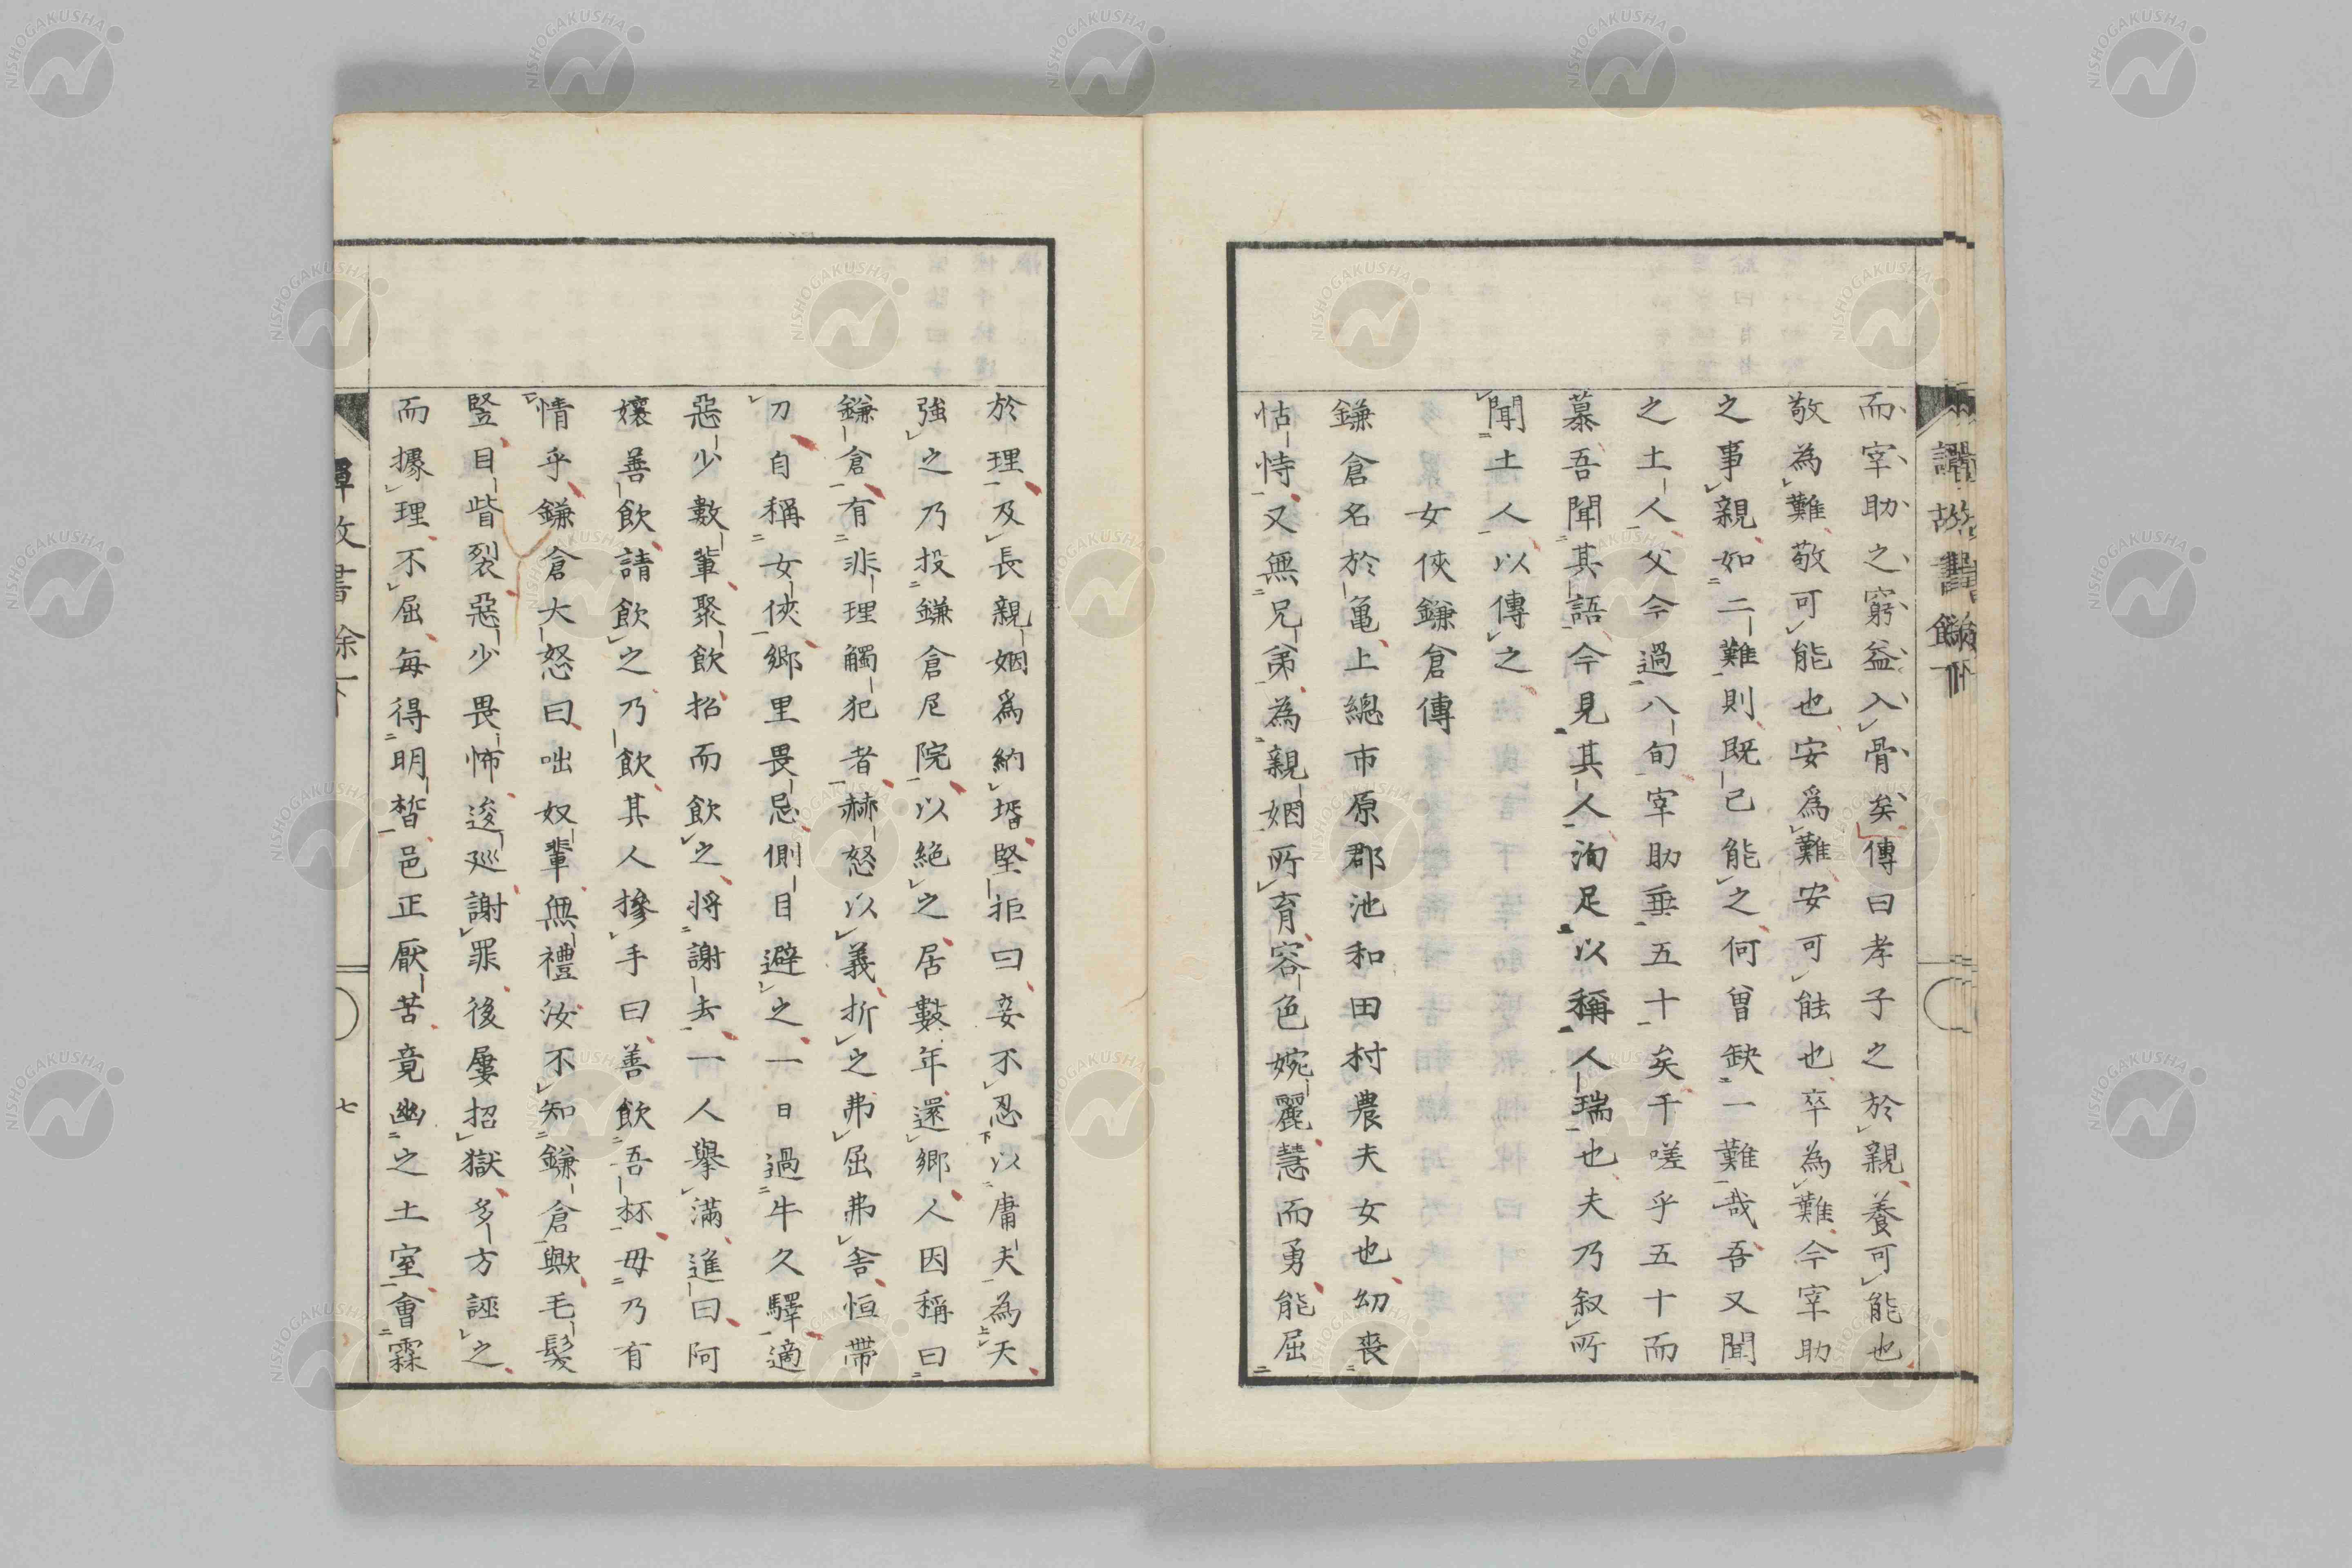 而宰助之窮益入骨矣傳曰孝子之於親養可能也
敬為難敬可能也安爲難安可能也卒為難今宰助
之事親如二難則既已能之何曾缺一難哉吾又聞
之土人父今過八旬宰助垂五十矣于嗟乎五十而
慕吾聞其語今見其人洵足以稱人瑞也夫乃叙所
聞土人以傳之
女俠鎌倉傳
鎌倉名於亀上總市原郡池和田村農夫女也幼喪
怙恃又無兄弟為親姻所育容色婉麗慧而勇能屈
於理及長親姻爲納壻堅拒曰妾不忍以庸夫為天
強之乃投鎌倉尼院以絶之居數年還鄉人因稱曰
鎌倉有非理觸犯者赫怒以義折之弗屈弗舎恒帶
刀自稱女俠鄉里畏忌側目避之一日過牛久驛適
惡少數輩聚飲招而飲之將謝去一人擧滿進曰阿
孃善飲請飲之乃飲其人摻手曰善飲吾杯毋乃有
情乎鎌倉大怒曰咄奴輩無禮汝不知鎌倉歟毛髮
竪目眥裂惡少畏怖逡廵謝罪後屢招獄多方誣之
而據理不屈每得明晳邑正厭苦竟幽之土室會霖
七
NISHOGAKUSHA